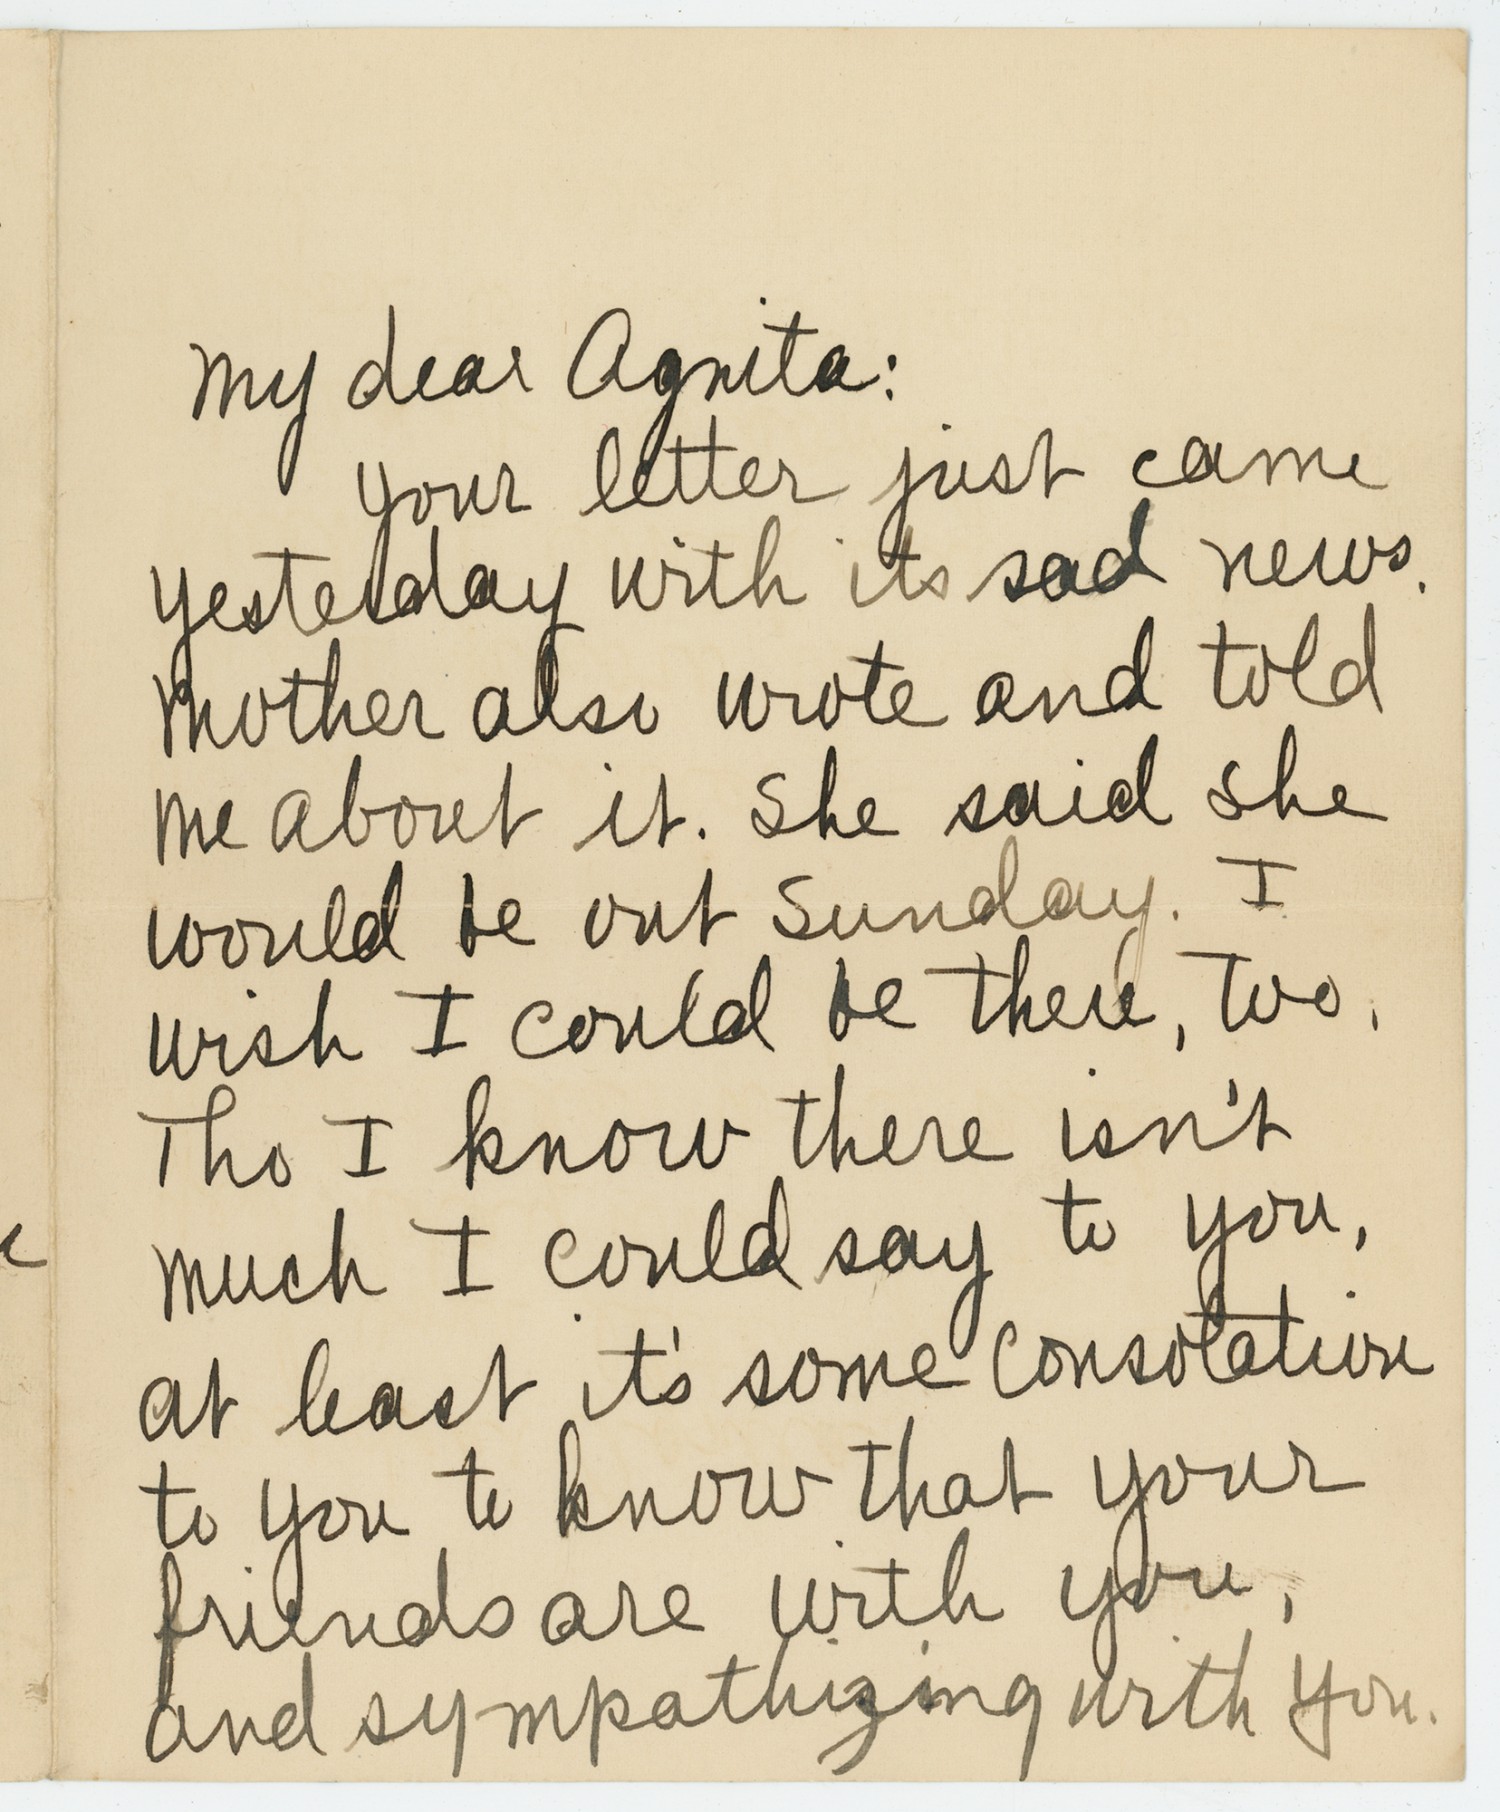 My dear Agnita:
Your letter just came
yesterday with its sad news.
Mother also wrote and told
me about it. She said she
would be out Sunday. I
wish I could be there, too.
Tho I know there isn't
much I could say to you,
at least it's some consolation
to you to know that your
friends are with you,
and sympathizing with you.